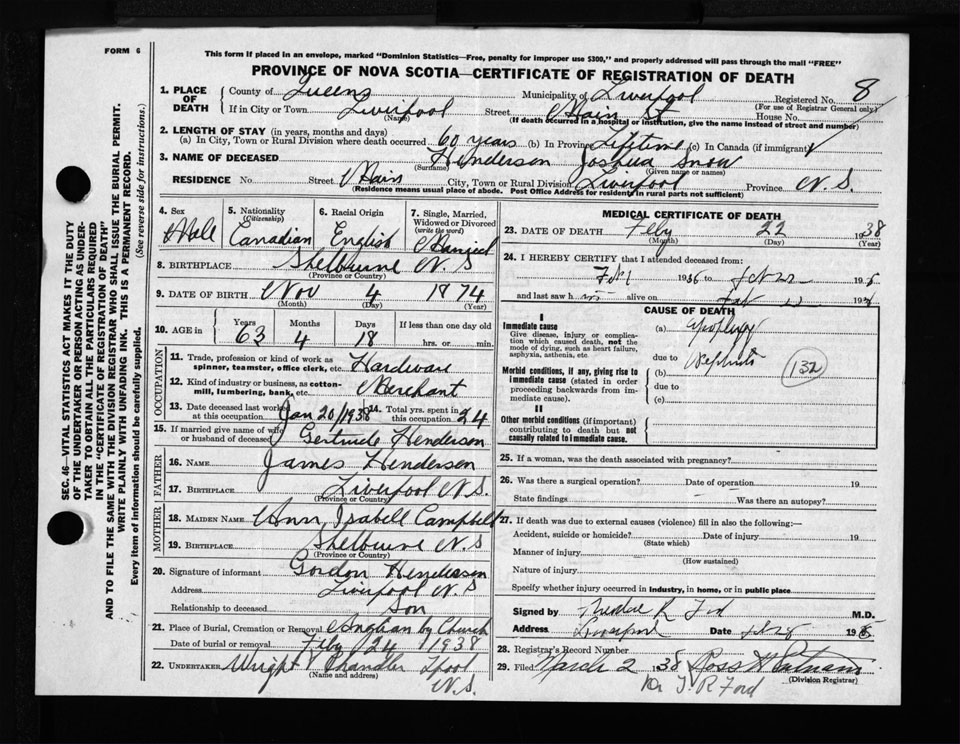 FORM 6
This form if placed in an envelope, marked "Dominion Statistics—Free, penalty for improper use $300," and properly addressed will pass through the mail "FREE"
PROVINCE OF NOVA SCOTIA—CERTIFICATE OF REGISTRATION OF DEATH
1. PLACE OF DEATH
County of Queens Municipality of Liverpool Registered No. 8
(For use of Registrar General only)
If in City or Town Liverpool Street Main St House No.
(Name) (If death occurred in a hospital or institution, give the name instead of street and number)
2. LENGTH OF STAY (in years, months and days)
(a) In City, Town or Rural Division where death occurred 60 years (b) In Province Lifetime (c) In Canada (if immigrant)
3. NAME OF DECEASED Henderson Joshua Snow
(Surname) (Given name or names)
RESIDENCE No. Street Main City, Town or Rural Division Liverpool Province N.S.
(Residence means usual place of abode. Post Office Address for residents in rural parts not sufficient)
4. Sex Male
5. Nationality (Citizenship) Canadian
6. Racial Origin English
7. Single, Married, Widowed or Divorced (write the word) Married
8. BIRTHPLACE Shelburne N.S
(Province or Country)
9. DATE OF BIRTH Nov 4 1874
(Month) (Day) (Year)
10. AGE in Years 63 Months 4 Days 18 If less than one day old hrs. or min.
OCCUPATION
11. Trade, profession or kind of work as spinner, teamster, office clerk, etc. Hardware
12. Kind of industry or business, as cotton-mill, lumbering, bank, etc. Merchant
13. Date deceased last worked at this occupation Jan 20/1938 14. Total yrs. spent in this occupation 24
15. If married give name of wife or husband of deceased Gertrude Henderson
FATHER
16. NAME James Henderson
17. BIRTHPLACE Liverpool N.S.
(Province or Country)
MOTHER
18. MAIDEN NAME Ann Isabell Campbell
19. BIRTHPLACE Shelburne N.S
(Province or Country)
20. Signature of informant Gordon Henderson
Address Liverpool N.S
Relationship to deceased Son
21. Place of Burial, Cremation or Removal Church
Date of burial or removal Feby 24 1938
22. UNDERTAKER Wright Chandler Lpool
(Name and address) N.S.
MEDICAL CERTIFICATE OF DEATH
23. DATE OF DEATH Feby 22 1938
(Month) (Day) (Year)
24. I HEREBY CERTIFY that I attended deceased from:
1936 to 193
and last saw h alive on 193
CAUSE OF DEATH
I
Immediate cause
Give disease, injury or complication which caused death, not the mode of dying, such as heart failure, asphyxia, asthenia, etc.
(a) Apoplexy
due to
Morbid conditions, if any, giving rise to immediate cause (stated in order proceeding backwards from immediate).
(b) Nephritis
due to
(c)
132
II
Other morbid conditions (if important) contributing to death but not causally related to immediate cause.
25. If a woman, was the death associated with pregnancy?
26. Was there a surgical operation? Date of operation 19
State findings Was there an autopsy?
27. If death was due to external causes (violence) fill in also the following:—
Accident, suicide or homicide? Date of injury 19
(State which)
Manner of injury
(How sustained)
Nature of injury
Specify whether injury occurred in industry, in home, or in public place
Signed by R Ford M.D.
Address Liverpool Date 193
28. Registrar's Record Number
29. Filed March 2 1938 Ross
(Division Registrar)
Dr T. R. Ford
SEC. 46—VITAL STATISTICS ACT MAKES IT THE DUTY
OF THE UNDERTAKER OR PERSON ACTING AS UNDER-
TAKER TO OBTAIN ALL THE PARTICULARS REQUIRED
IN THE "CERTIFICATE OF REGISTRATION OF DEATH"
AND TO FILE THE SAME WITH THE DIVISION REGISTRAR WHO SHALL ISSUE THE BURIAL PERMIT.
WRITE PLAINLY WITH UNFADING INK. THIS IS A PERMANENT RECORD.
Every item of information should be carefully supplied. (See reverse side for instructions.)